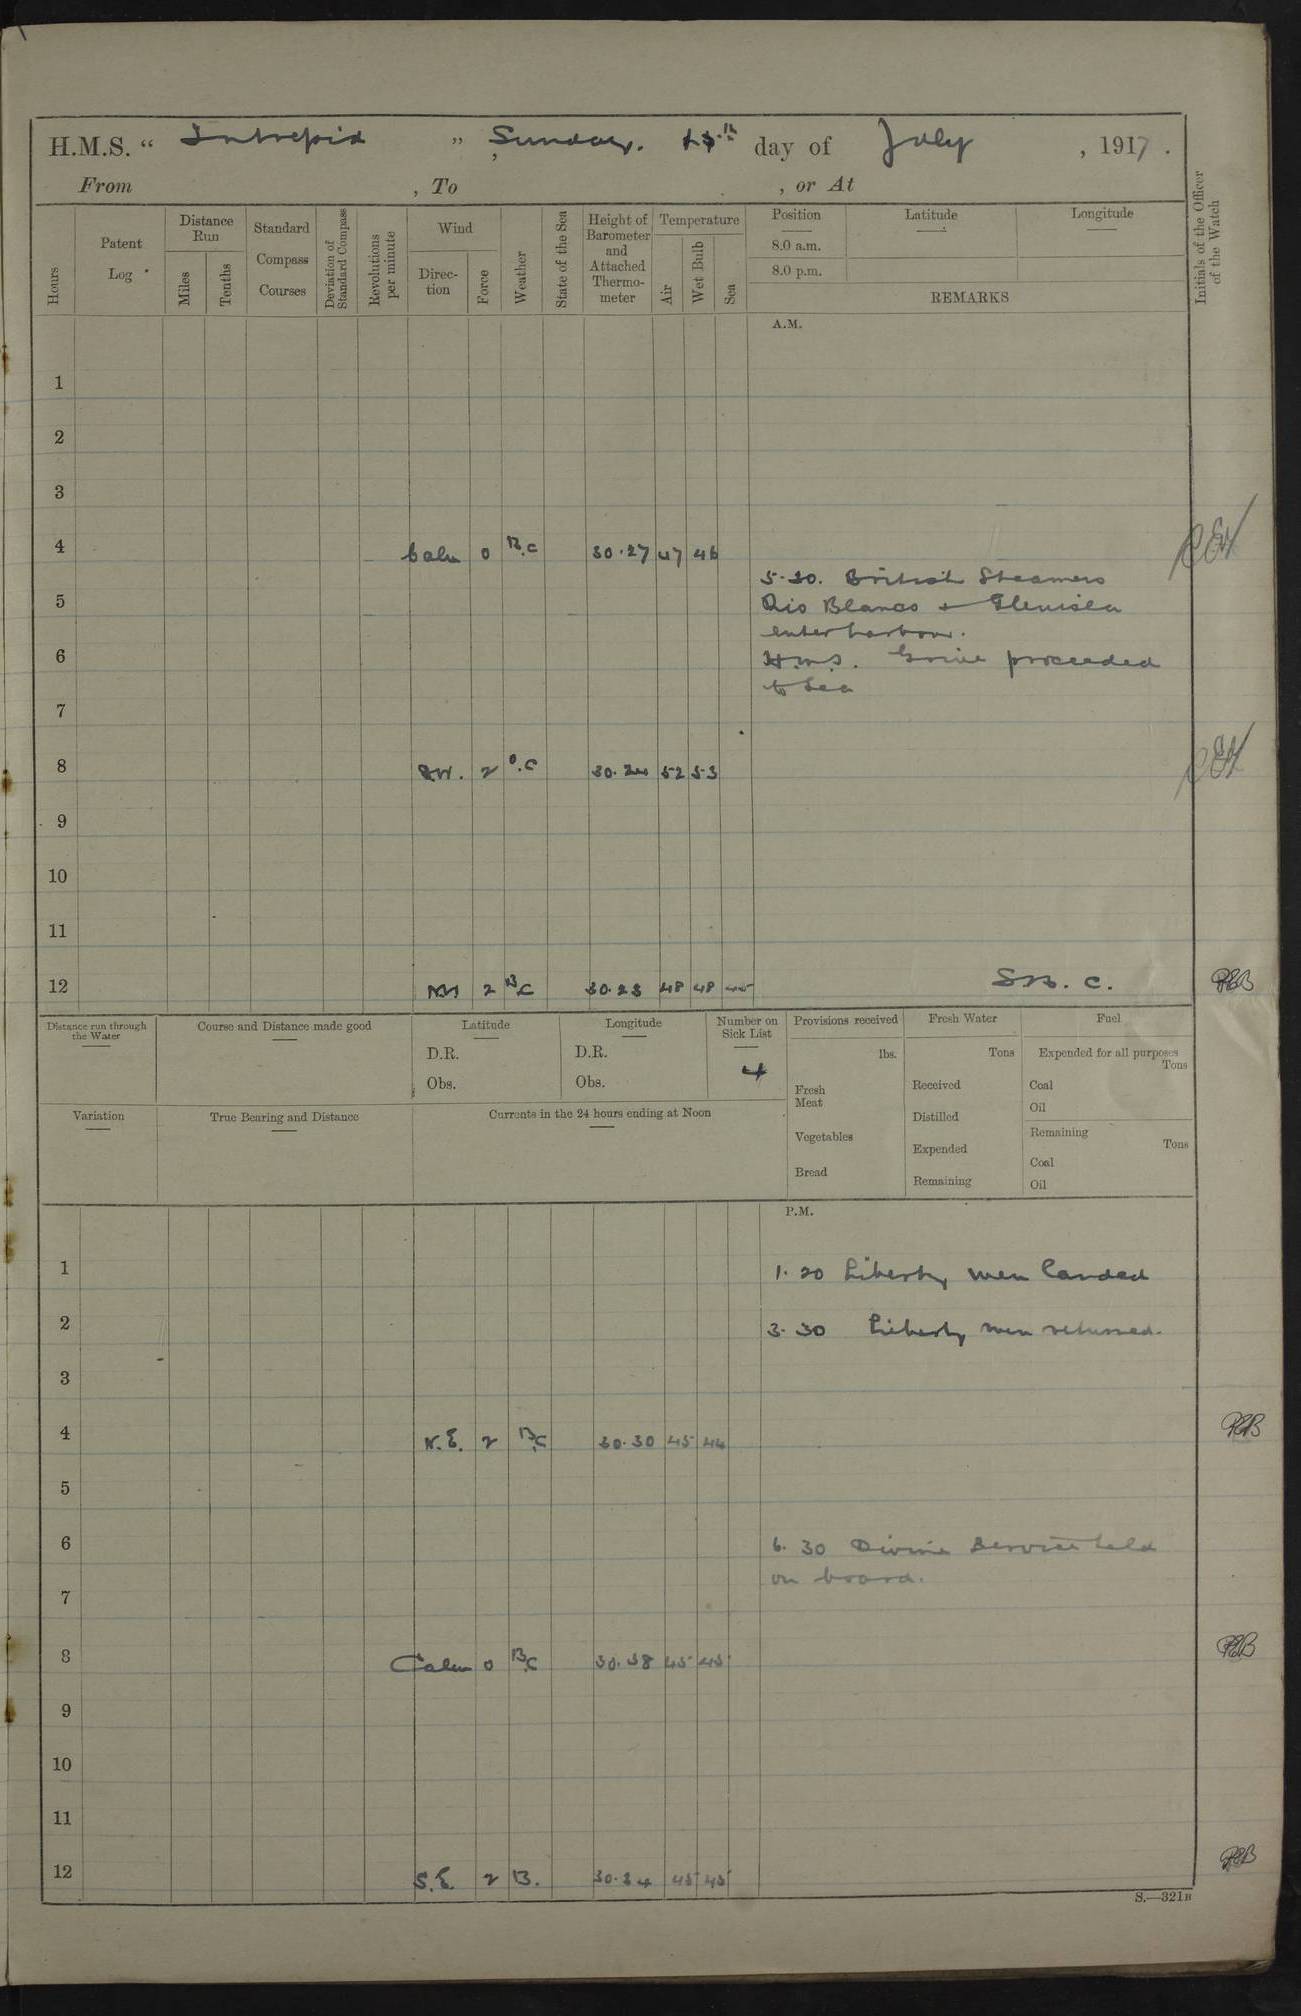 H.M.S. “ Intrepid ” , Sunday. 15.th day of July , 1917.
From , To , or At
Hours
Patent Log
Distance Run
Miles
Tenths
Standard Compass Courses
Deviation of Standard Compass
Revolutions per minute
Wind
Direc-tion
Force
Weather
State of the Sea
Height of Barometer and Attached Thermo-meter
Temperature
Air
Wet Bulb
Sea
Position
8.0 a.m.
8.0 p.m.
Latitude
Longitude
REMARKS
Initials of the Officer of the Watch
A.M.
1
2
3
4 Calm 0 B.C 30.27 47 46
5.30. British Steamers
5 Rio Blanco + Glenisla
enter harbour.
6 H.M.S. proceeded
to Sea
7
8 SW. 2 O.C 30.24 52 53
9
10
11
12 NW 2 B.C 30.23 48 48 45 S.B.C. PEB
Distance run through the Water
Course and Distance made good
Latitude
D.R.
Obs.
Longitude
D.R.
Obs.
Number on Sick List
4
Provisions received
lbs.
Fresh Meat
Vegetables
Bread
Fresh Water
Tons
Received
Distilled
Expended
Remaining
Fuel
Expended for all purposes
Tons
Coal
Oil
Remaining
Tons
Coal
Oil
Variation
True Bearing and Distance
Currents in the 24 hours ending at Noon
P.M.
1 1.20 Liberty men landed
2 3.30 Liberty men returned.
3
4 N.E. 2 B.C 30.30 45 44 PEB
5
6 6.30 Divine Service held
on board.
7
8 Calm 0 B.C 30.38 45 45 PEB
9
10
11
12 S.E. 2 B. 30.34 45 45 PEB
S.—321B